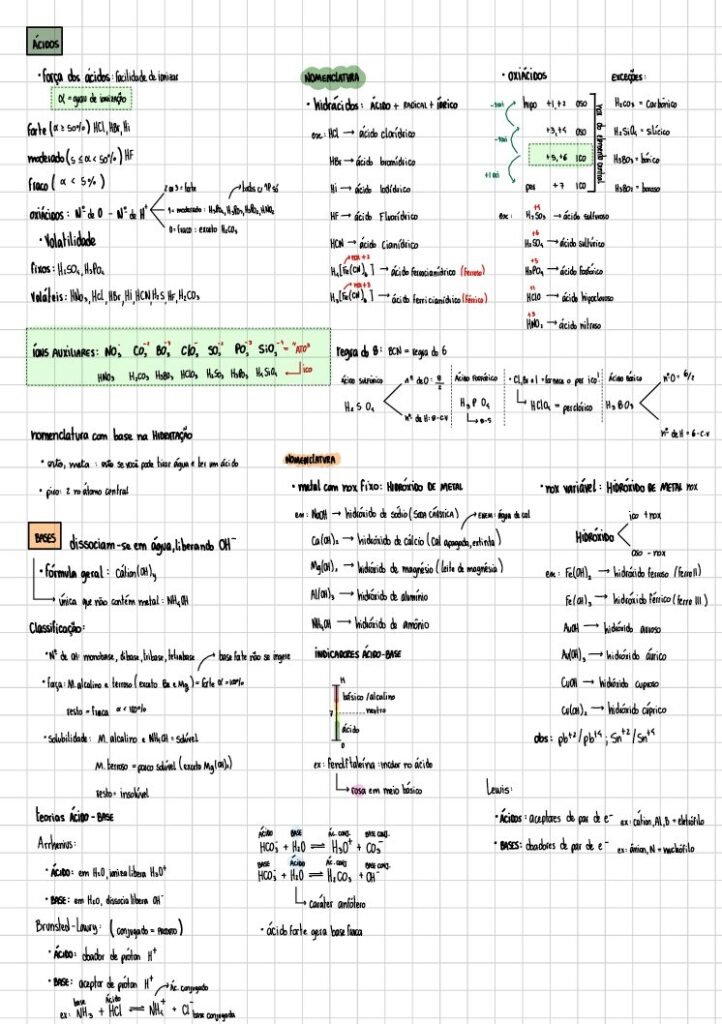 ÁCIDOS
• força dos ácidos: facilidade de ionizar
α = grau de ionização
forte (α ≥ 50%) HCl, HBr, Hi
moderado (5 ≤ α < 50%) HF
fraco (α < 5%)
oxiácidos: Nº de O - Nº de H⁺
2 ou 3 = forte
1 = moderado: H₃PO₄, H₃PO₃, H₃PO₂, HNO₂
0 = fraco: exceto H₂CO₃
• Volatilidade
fixos: H₂SO₄, H₃PO₄
Voláteis: HNO₃, HCl, HBr, Hi, HCN, H₂S, HF, H₂CO₃
NOMENCLATURA
• hidrácidos: ÁCIDO + RADICAL + ÍDRICO
ex: HCl → ácido clorídrico
HBr → ácido bromídrico
Hi → ácido iodídrico
HF → ácido Fluorídrico
HCN → ácido Cianídrico
nox +2
H₄[Fe(CN)₆] → ácido ferrocianídrico (Ferroso)
nox +3
H₃[Fe(CN)₆] → ácido ferricianídrico (Férrico)
• OXIÁCIDOS
hipo +1,+2 oso
+3,+4 oso
+5,+6 ico
per +7 ico
nox do elemento central
ex:
+4
H₂SO₃ → ácido sulfuroso
+6
H₂SO₄ → ácido sulfúrico
+5
H₃PO₄ → ácido fosfórico
+1
HClO → ácido hipocloroso
+3
HNO₂ → ácido nitroso
EXCEÇÕES:
H₂CO₃ = Carbônico
H₂SiO₃ = silícico
H₃BO₃ = bórico
ÍONS AUXILIARES: NO₃⁻ CO₃⁻² BO₃⁻³ ClO₃⁻ SO₄⁻² PO₄⁻³ SiO₄⁻⁴ = "ATO"
HNO₃ H₂CO₃ H₃BO₃ HClO₃ H₂SO₄ H₃PO₄ H₄SiO₄ ico
regra do 8: BCN = regra do 6
ácido sulfúrico
H₂SO₄
nº de O = 8/2
nº de H = 8-c.v
Ácido fosfórico
H₃PO₄
8-5
• Cl, Br e I = fornece o per ico!
HClO₄ = perclórico
Ácido bórico
H₃BO₃
nº O = 6/2
nº de H = 6-c.v
nomenclatura com base na HIDRATAÇÃO
• orto, meta: orto se você pode tirar água e ter um ácido
• piro: 2 no átomo central
BASES
dissociam-se em água, liberando OH⁻
• Fórmula geral: Cátion(OH)y
única que não contém metal: NH₄OH
Classificação:
• Nº de OH: monobase, dibase, tribase, tetrabase
base forte não se ingere
• força: M. alcalino e terroso (exceto Be e Mg) = forte α ≃ 100%
resto = fraca α < 100%
• Solubilidade: M. alcalino e NH₄OH = solúvel
M. terroso = pouco solúvel (exceto Mg(OH)₂)
resto = insolúvel
NOMENCLATURA
• metal com nox fixo: HIDRÓXIDO DE METAL
ex: NaOH → hidróxido de sódio (SODA CÁUSTICA)
ENEM: água de cal
Ca(OH)₂ → hidróxido de cálcio (Cal apagada, extinta)
Mg(OH)₂ → hidróxido de magnésio (leite de magnésia)
Al(OH)₃ → hidróxido de alumínio
NH₄OH → hidróxido de amônio
• nox variável: HIDRÓXIDO DE METAL nox
HIDRÓXIDO
ico + nox
oso - nox
ex: Fe(OH)₂ → hidróxido ferroso (ferro II)
Fe(OH)₃ → hidróxido férrico (ferro III)
AuOH → hidróxido auroso
Au(OH)₃ → hidróxido áurico
CuOH → hidróxido cuproso
Cu(OH)₂ → hidróxido cúprico
obs: Pb⁺²/Pb⁺⁴; Sn⁺²/Sn⁺⁴
INDICADORES ÁCIDO-BASE
14
básico/alcalino
7 neutro
ácido
0
ex: Fenolftaleína: incolor no ácido
rosa em meio básico
teorias ÁCIDO-BASE
Arrhenius:
• ÁCIDO: em H₂O, ioniza libera H₃O⁺
• BASE: em H₂O, dissocia libera OH⁻
Brønsted-Lowry: (conjugado = PRODUTO)
• ÁCIDO: doador de próton H⁺
• BASE: aceptor de próton H⁺
base ácido ác. conjugado
ex: NH₃ + HCl ⇌ NH₄⁺ + Cl⁻ base conjugada
ÁCIDO BASE ÁC. CONJ. BASE CONJ.
HCO₃⁻ + H₂O ⇌ H₃O⁺ + CO₃⁻
BASE ÁCIDO ÁC. CONJ. BASE CONJ.
HCO₃⁻ + H₂O ⇌ H₂CO₃ + OH⁻
caráter anfótero
• ácido forte gera base fraca
Lewis:
• ÁCIDOS: aceptores do par de e⁻ ex: cátion, Al, B = eletrófilo
• BASES: doadores do par de e⁻ ex: ânion, N = nucleófilo